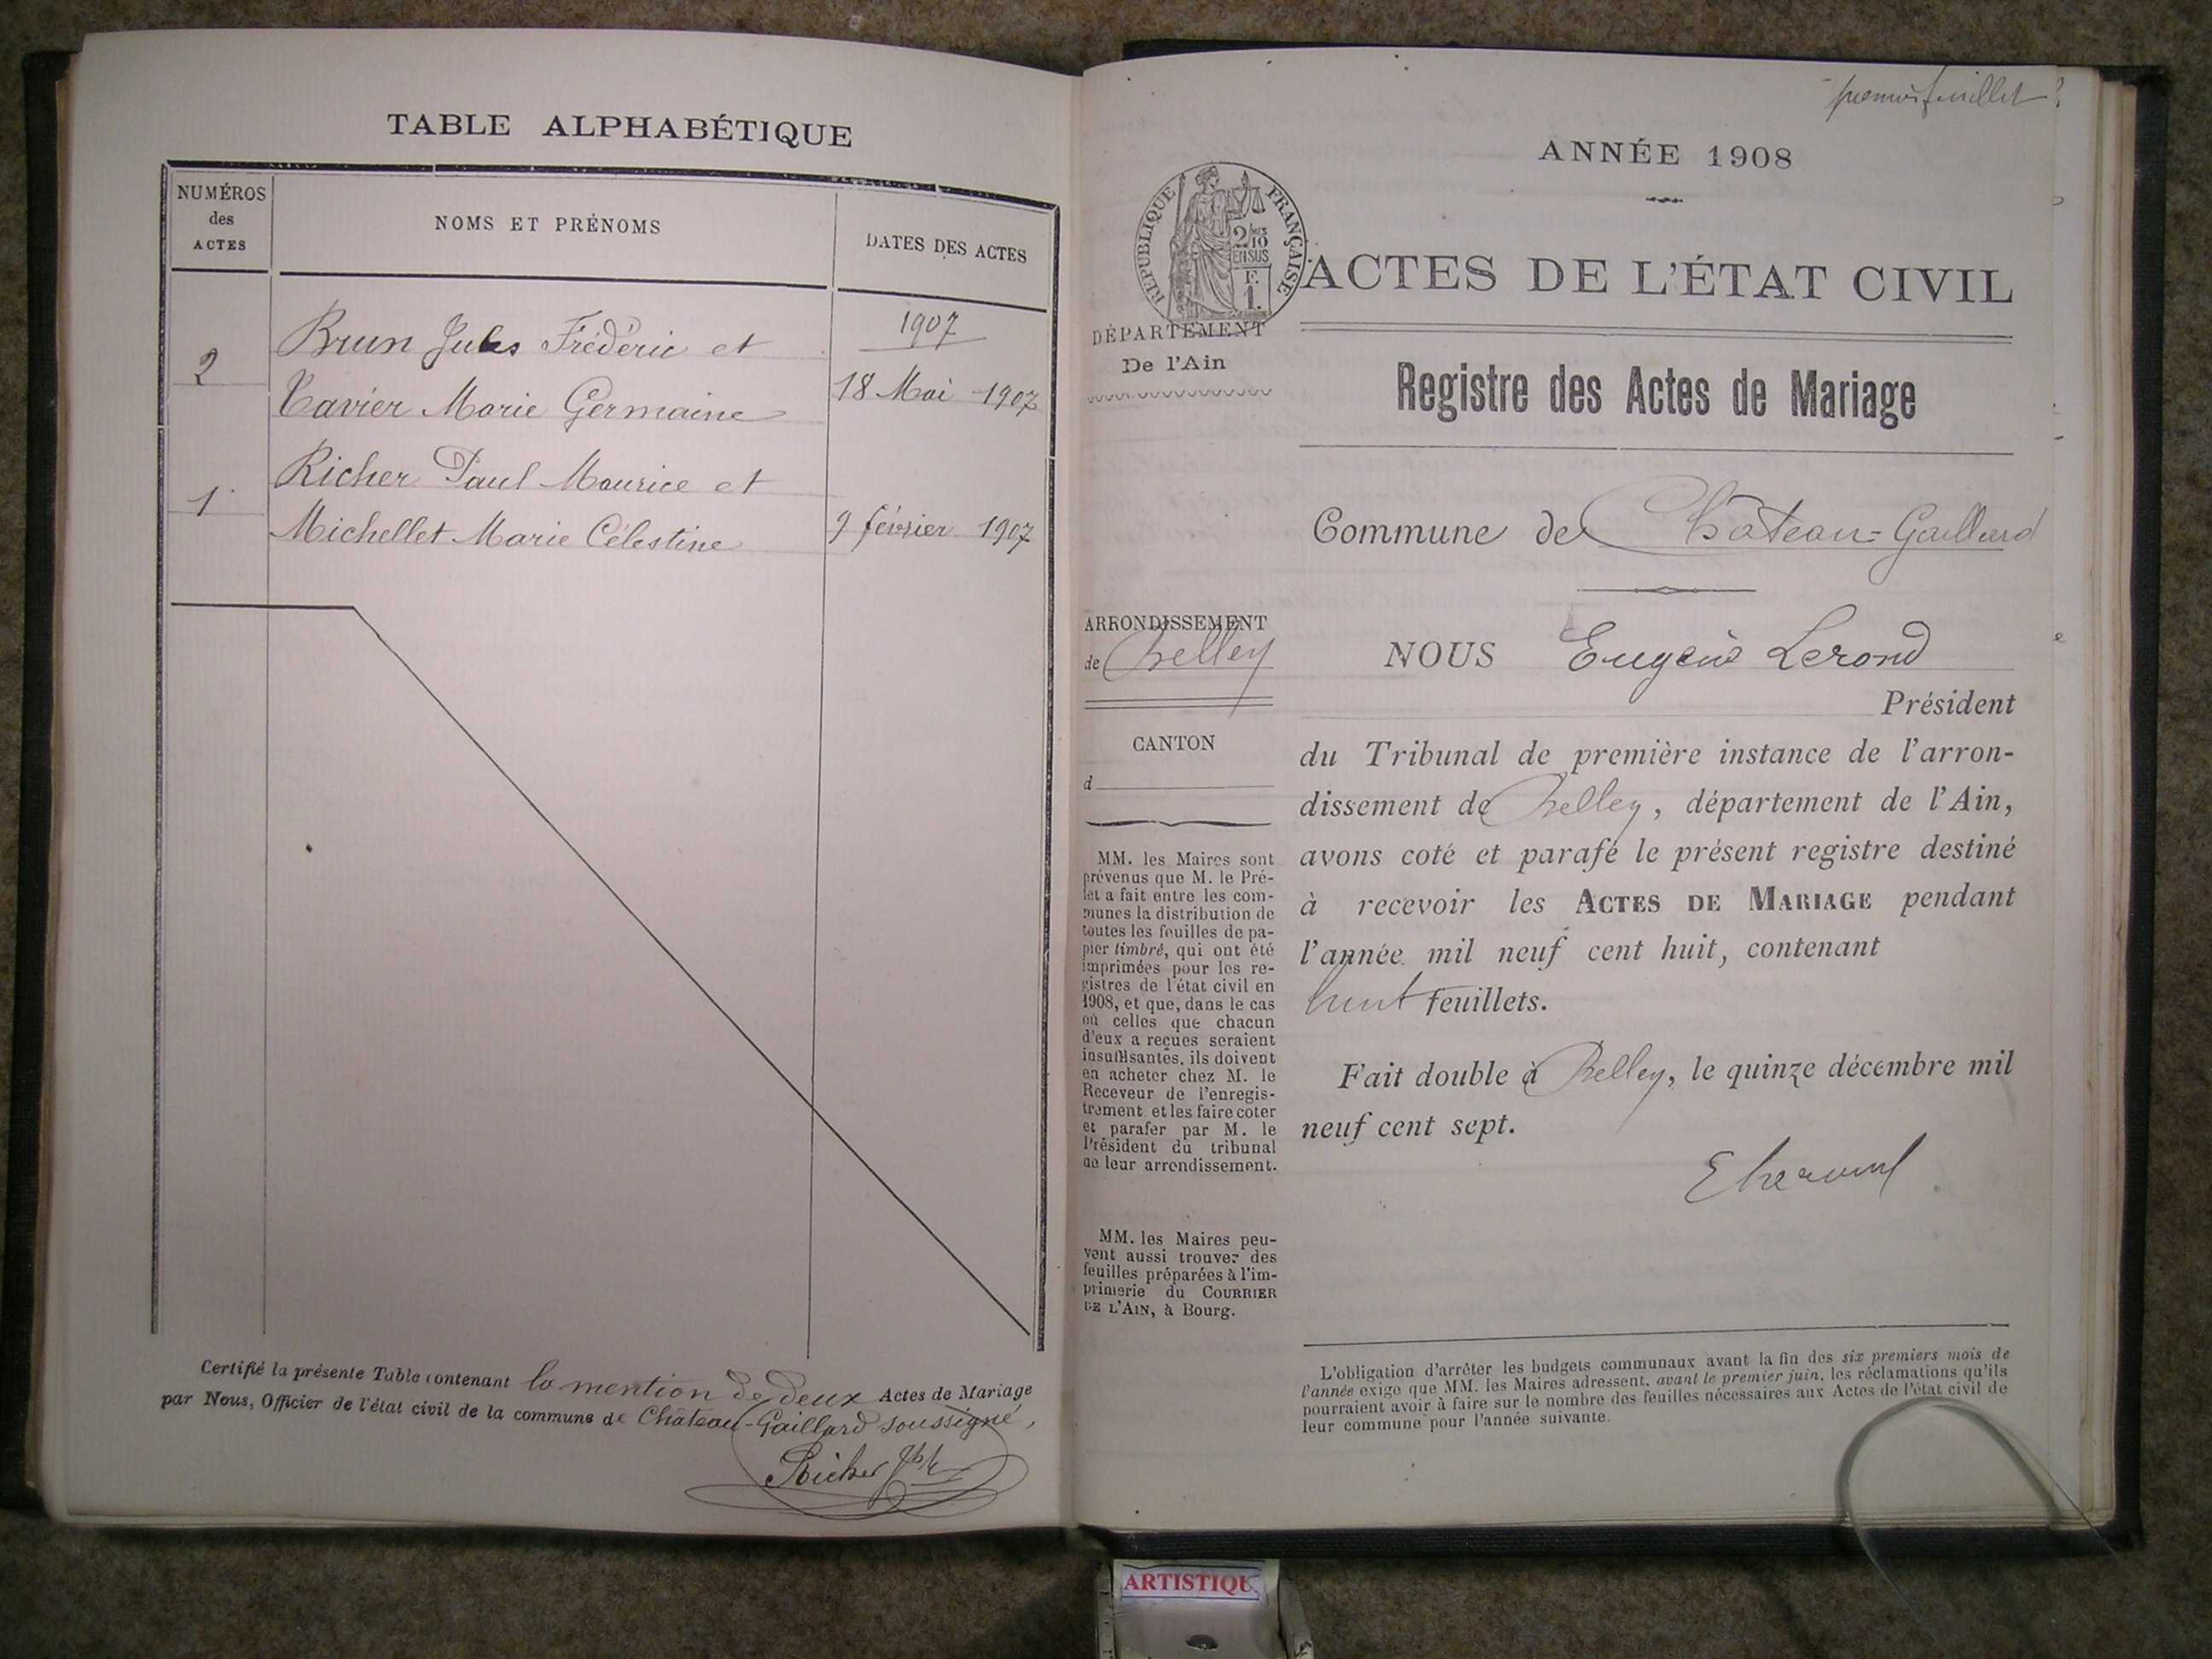 TABLE ALPHABÉTIQUE
NUMÉROS
des
ACTES
NOMS ET PRÉNOMS
DATES DES ACTES
1907
2
Brun Jules Frédéric et
Tavier Marie Germaine
18 Mai 1907
1
Richer Paul Maurice et
Michellet Marie Célestine
9 février 1907
Certifié la présente Table contenant la mention de deux Actes de Mariage
par Nous, Officier de l'état civil de la commune de Château-Gaillard soussigné,
Richer
premier feuillet
ANNÉE 1908
RÉPUBLIQUE FRANÇAISE
2/10
EN SUS
F.
1.
ACTES DE L'ÉTAT CIVIL
DÉPARTEMENT
De l'Ain
Registre des Actes de Mariage
Commune de Château=Gaillard
ARRONDISSEMENT
de Belley
CANTON
d
MM. les Maires sont
prévenus que M. le Pré-
fet a fait entre les com-
munes la distribution de
toutes les feuilles de pa-
pier timbré, qui ont été
imprimées pour les re-
gistres de l'état civil en
1908, et que, dans le cas
où celles que chacun
d'eux a reçues seraient
insuffisantes, ils doivent
en acheter chez M. le
Receveur de l'enregis-
trement et les faire coter
et parafer par M. le
Président du tribunal
de leur arrondissement.
MM. les Maires peu-
vent aussi trouver des
feuilles préparées à l'im-
primerie du COURRIER
DE L'AIN, à Bourg.
NOUS Eugène Lerond
Président
du Tribunal de première instance de l'arron-
dissement de Belley, département de l'Ain,
avons coté et parafé le présent registre destiné
à recevoir les ACTES DE MARIAGE pendant
l'année mil neuf cent huit, contenant
huit feuillets.
Fait double à Belley, le quinze décembre mil
neuf cent sept.
L'obligation d'arrêter les budgets communaux avant la fin des six premiers mois de
l'année exige que MM. les Maires adressent, avant le premier juin, les réclamations qu'ils
pourraient avoir à faire sur le nombre des feuilles nécessaires aux Actes de l'état civil de
leur commune pour l'année suivante.
ARTISTIQU